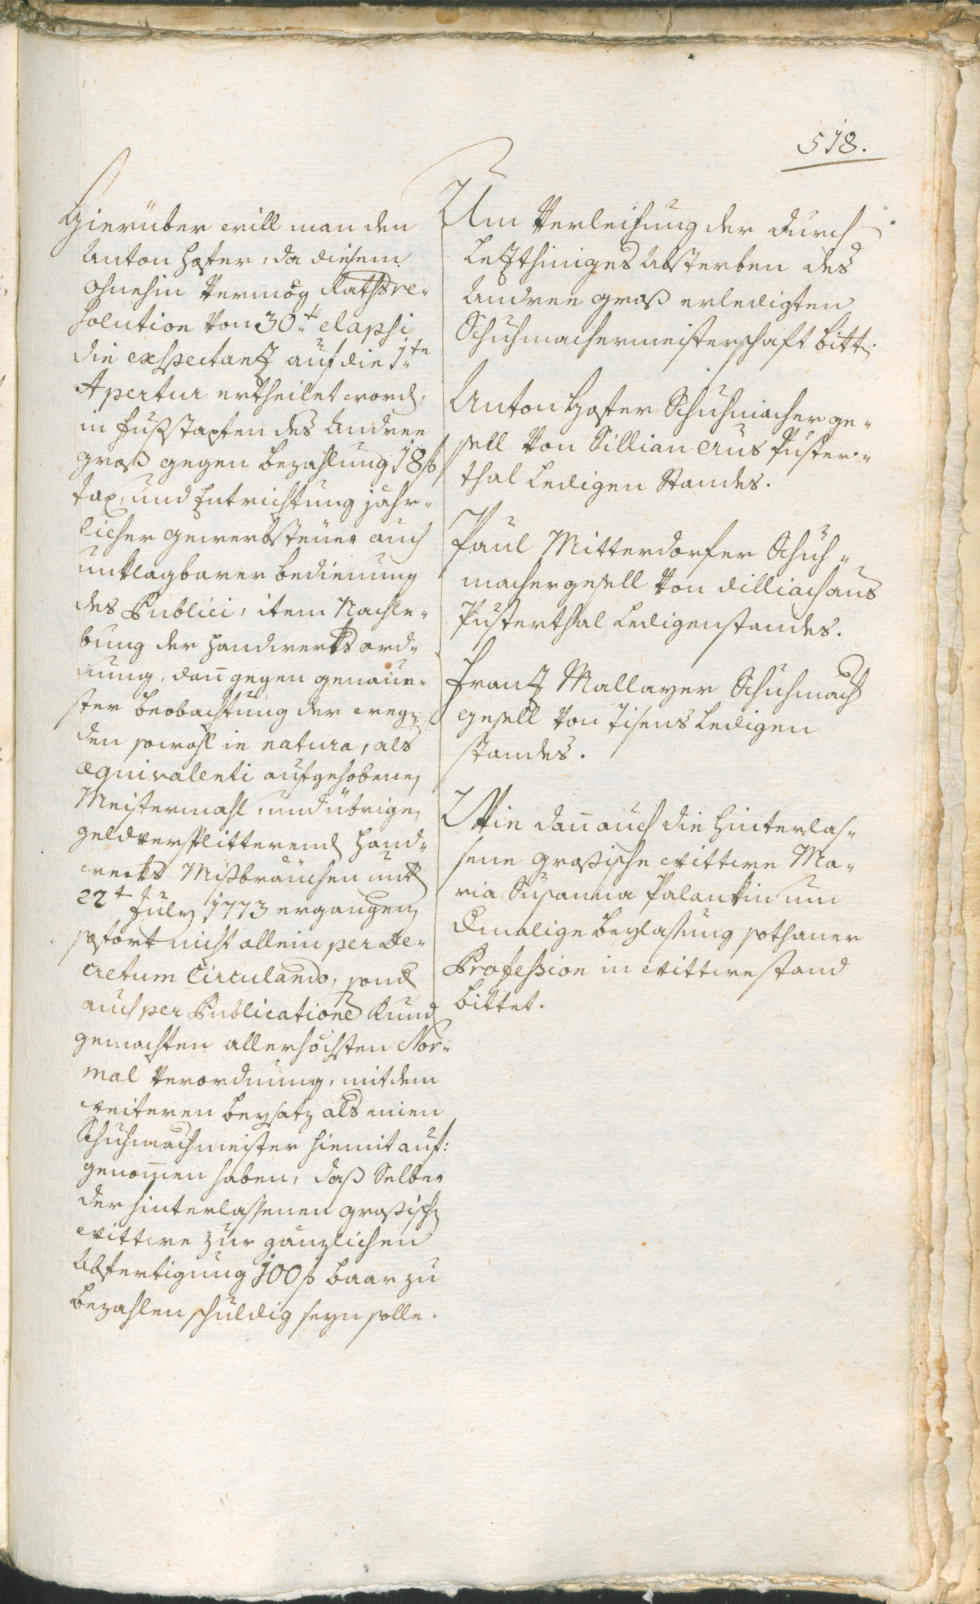 518.
Hierüber will man den
Anton Hoster, da diesem
ohnehin vermög Rathsre¬
solution von 30t elapsi
die exspectantz auf die 1te
Apertur ertheilet word,
in Fußstapfen des Andree
groß gegen bezahlung 18 f
tax, und Entrichtung jähr¬
licher gewerbsteuer auch
unklagbarer bedienung
des Publici, item Nachle¬
bung der Handwerks ord¬
nung, dan̄ gegen genaue¬
ster beobachtung der weg
den sowohl in natura, als
æquivalenti aufgehobenen
Meistermahl, und übrigen
geldversplitterend Hand¬
werks Mißbräuchen unt
22t July 1773 ergangen,
sofort nicht allein per De¬
cretum Circulando, sond
auch per Publicationē kund
gemachten allerhöchsten Nor¬
mal Verordnung, mit dem
weiteren beysatz als einen
Schuhmachmeister hiemit auf:
genom̄en haben, daß Selber
der hinterlassenen großisch
wittwe zur gänzlichen
Abfertigung 100 f baar zu
bezahlen schuldig seyn solle.
Um Verleihung der durch
letzthiniges Absterben des
Andree groß erledigten
Schuhmachermeisterschaft bitt:
Anton Hoster Schuhmacherge¬
sell von Sillian aus Puster¬
thal ledigen Standes.
Paul Mitterdorfer Schuh¬
machergesell von dilliach aus
Pusterthal ledigenstandes.
Frantz Mallayer Schuhmach
gesell von Tisens ledigen
standes.
Wie dan̄ auch die hinterlas¬
sene großische wittwe Ma¬
ria Susanna Palankin um
Emalige beylassung sothaner
Profession in wittwestand
bittet.